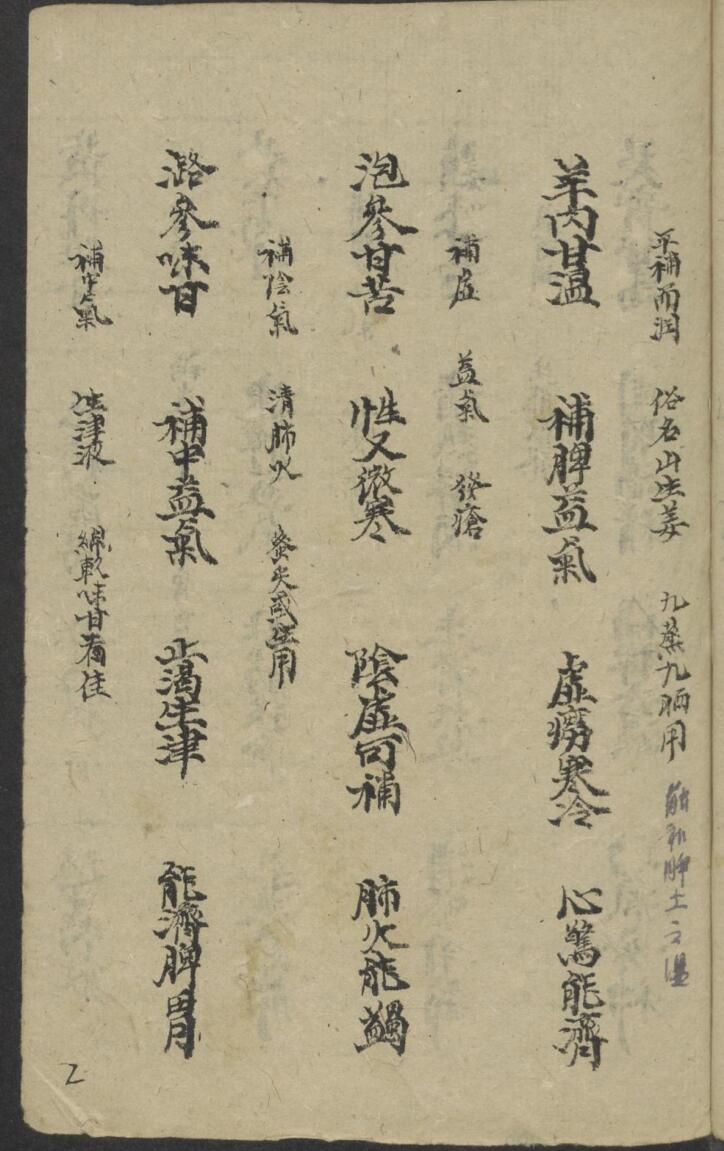 平補而潤 俗名山生姜 九蒸九晒用 能和脾土之濕
羊肉甘温 補脾益氣 虛癆寒冷 心驚能濟
補虛 益氣 發瘡
泡參甘苦 性又微寒 陰虛可補 肺火能蠲
補陰氣 清肺火 蜜炙或生用
潞參味甘 補中益氣 止渴生津 能濟脾胃
補中氣 生津液 綿軟味甘者佳
2